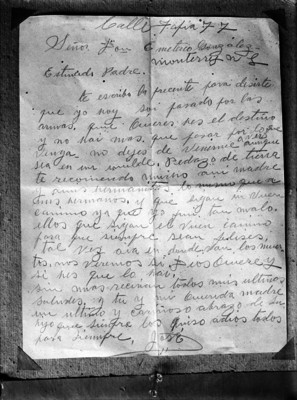 Calle Tapia 77
Señor Don Emeterio González
Monterrey N L
Estimado Padre.
te escribo la presente para desirte
que oy hoy soi pasado por las
armas, pues quieres es el destino
y no hai mas que pasar por lo que
venga no dejes de aunque
sea en un umilde Pedazo de tierra
te recomiendo mujero a mi madre
y a mis hermanitos, lo mismo que a
sus hermanos, y que sigan un buen
camino ya que yo fui tan malo
ellos que sigan el buen camino
para que siempre sean felises,
tal vez aya en donde van los muer
tos, nos veremos si Dios quiere y
si hes que lo hai,
sin mas reciban todos mis ultimos
saludos, y tu y mi querida madre
un ultimo y cariñoso abrazo de su
hijo que siempre los quiso adios todos
para siempre,